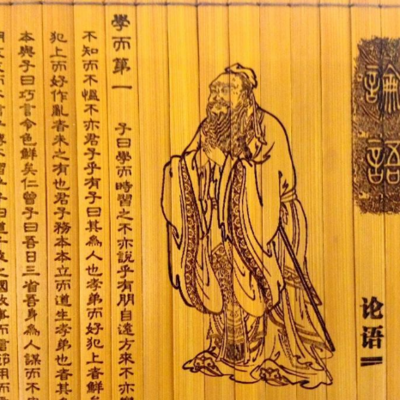 論語
论语
學而第一 子曰學而時習之不亦說乎有朋自遠方來不亦
不知而不慍不亦君子乎有子曰其為人也孝弟而好犯上者鮮
犯上而好作亂者未之有也君子務本本立而道生孝弟也者其
本與子曰巧言令色鮮矣仁曾子曰吾日三省吾身為人謀而不